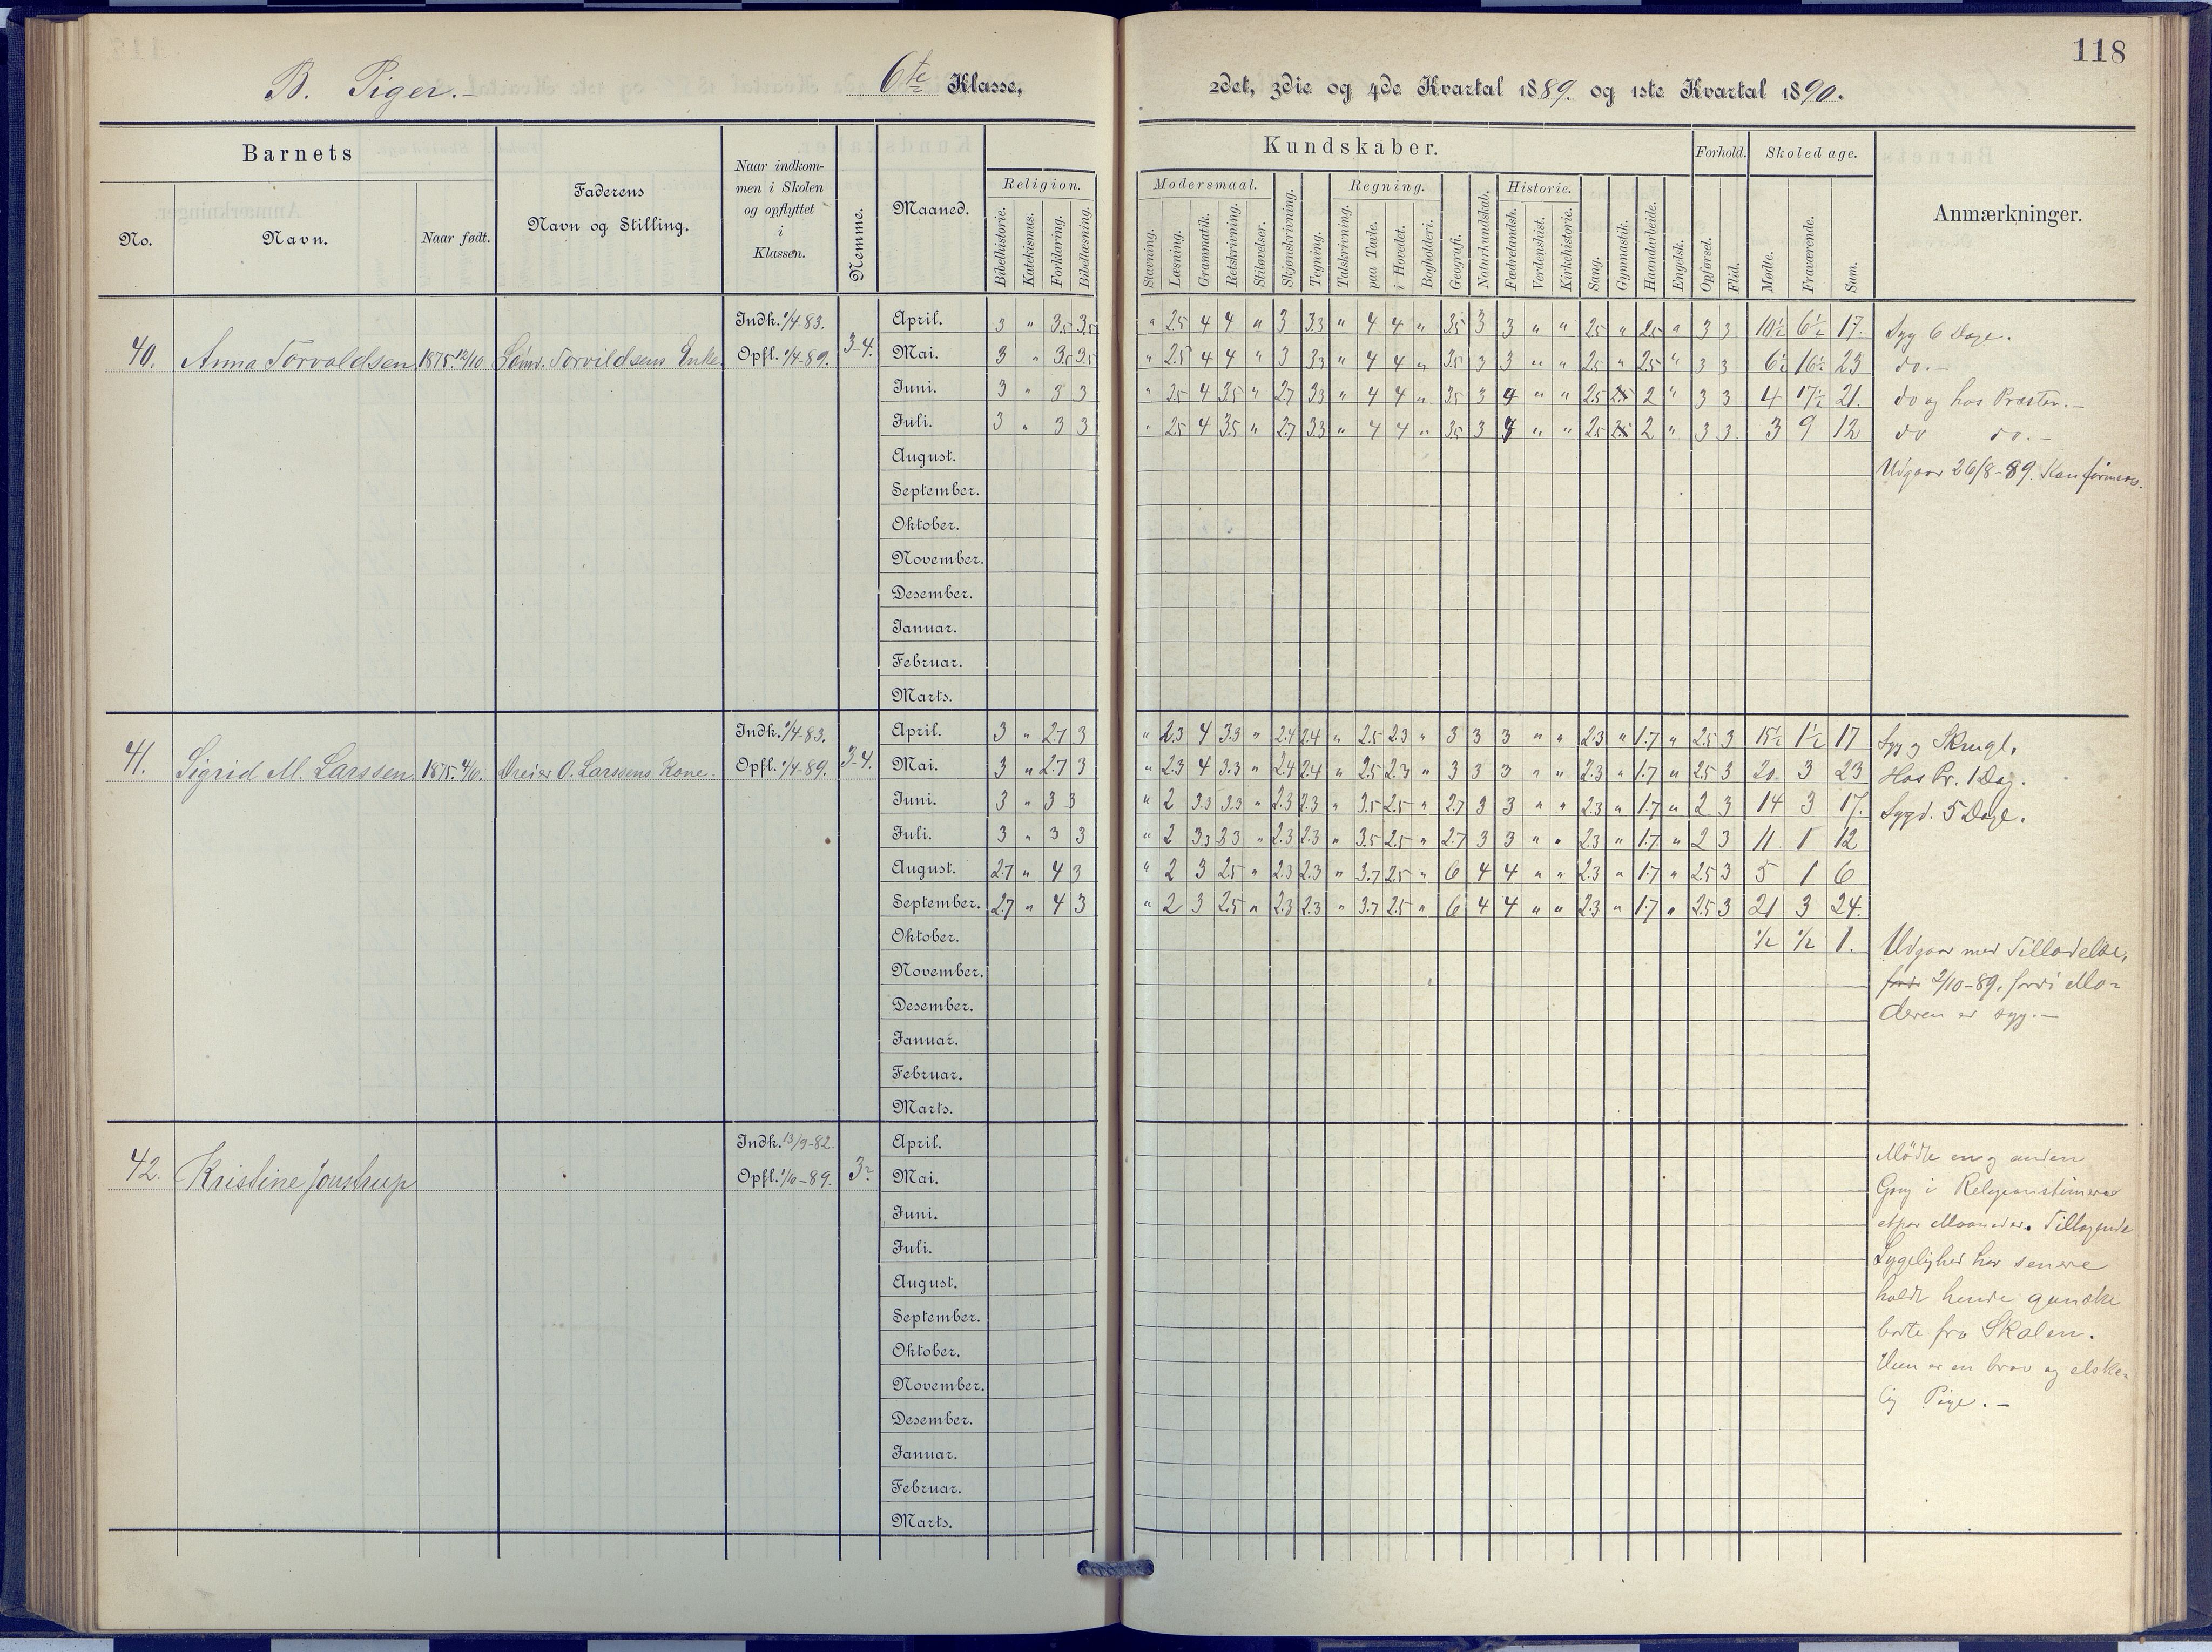 118
B. Piger.- 6te Klasse, 2det, 3die og 4de Kvartal 1889. og 1ste Kvartal 1890.
Barnets
No. Navn. Naar født.
Faderens
Navn og Stilling.
Naar indkom-
men i Skolen
og opflyttet
i
Klassen.
Nemme.
Maaned.
Kundskaber.
Religion.
Bibelhistorie. Katekismus. Forklaring. Bibellæsning.
Modersmaal.
Stavning. Læsning. Grammatik. Retskrivning. Stiløvelser.
Skjønskrivning. Tegning.
Regning.
Talskrivning. paa Tavle. i Hovedet. Bogholderi.
Geografi. Naturkundskab.
Historie.
Fædrelandsh. Verdenshist. Kirkehistorie.
Sang. Gymnastik. Haandarbeide. Engelsk.
Forhold.
Opførsel. Flid.
Skoledage.
Mødte. Fraværende. Sum.
Anmærkninger.
40. Anna Torvaldsen 1875. 12/10 Sømd. Torvildsens Enke.
Indk. 1/4-83.
Opfl. 1/4-89. 3-4.
April. 3 " 3.5 3.5 " 2.5 4 4 " 3 3.3 " 4 4 " 3.5 3 3 " " 2.5 " 2.5 " 3 3 10½ 6½ 17. Syg 6 Dage.
Mai. 3 " 3.5 3.5 " 2.5 4 4 " 3 3.3 " 4 4 " 3.5 3 3 " " 2.5 " 2.5 " 3 3 6½ 16½ 23 do.-
Juni. 3 " 3 3 " 2.5 4 3.5 " 2.7 3.3 " 4 4 " 3.5 3 4 " " 2.5 2 " 3 3 4 17½ 21. do og hos Præsten.-
Juli. 3 " 3 3 " 2.5 4 3.5 " 2.7 3.3 " 4 4 " 3.5 3 4 " " 2.5 2 " 3 3 3 9 12 do do.-
August.
Udgaar 26/8-89.
September.
Oktober.
November.
Desember.
Januar.
Februar.
Marts.
41. Sigrid M. Larssen 1875. 4/6. Dreier O. Larssens Kone.
Indk. 1/4-83.
Opfl. 1/4-89. 3-4.
April. 3 " 2.7 3 " 2.3 4 3.3 " 2.4 2.4 " 2.5 2.3 " 3 3 3 " " 2.3 " 1.7 " 2.5 3 15½ 1½ 17
Mai. 3 " 2.7 3 " 2.3 4 3.3 " 2.4 2.4 " 2.5 2.3 " 3 3 3 " " 2.3 " 1.7 " 2.5 3 20. 3 23 Hos Pr. 1 Dag.
Juni. 3 " 3 3 " 2 3.3 3.3 " 2.3 2.3 " 3.5 2.5 " 2.7 3 3 " " 2.3 " 1.7 " 2 3 14 3 17. Sygd. 5 Dage.
Juli. 3 " 3 3 " 2 3.3 3.3 " 2.3 2.3 " 3.5 2.5 " 2.7 3 3 " " 2.3 " 1.7 " 2 3 11 1 12
August. 2.7 " 4 3 " 2 3 2.5 " 2.3 2.3 " 3.7 2.5 " 6 4 4 " " 2.3 " 1.7 " 2.5 3 5 1 6
September. 2.7 " 4 3 " 2 3 2.5 " 2.3 2.3 " 3.7 2.5 " 6 4 4 " " 2.3 " 1.7 " 2.5 3 21 3 24.
Oktober. ½ ½ 1. Udgaar med Tilladelse,
November. fordi 2/10-89, fordi Mo-
Desember. deren er syg.-
Januar.
Februar.
Marts.
42. Kristine Jonstrup
Indk. 13/9-82.
Opfl. 1/10-89.
April. Mødte en og anden
Mai. Gang i Religionstimerne
Juni. et par Maaneder. Tiltagende
Juli. Sygelighed har senere
August. holdt hende ganske
September. borte fra Skolen.
Oktober. Hun er en brav og elske-
November. lig Pige.-
Desember.
Januar.
Februar.
Marts.